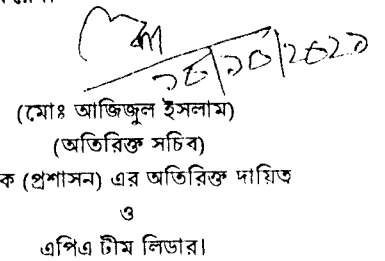 (মোঃ আজিজুল ইসলাম)
(অতিরিক্ত সচিব)
ক (প্রশাসন) এর অতিরিক্ত দায়িত্ব
ও
এপিএ টীম লিডার।